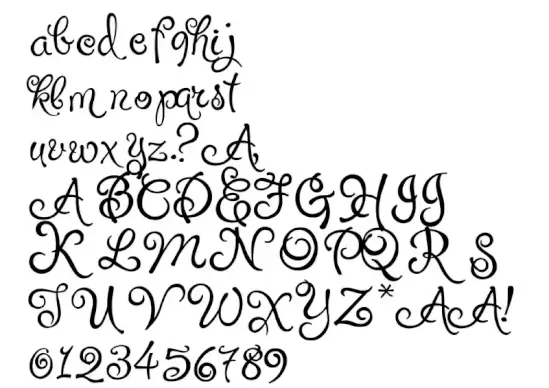 abcdefghij
klmnopqrst
uvwxyz.? A
ABCDEFGHIJ
KLMNOPQRS
TUVWXYZ*AA!
0123456789